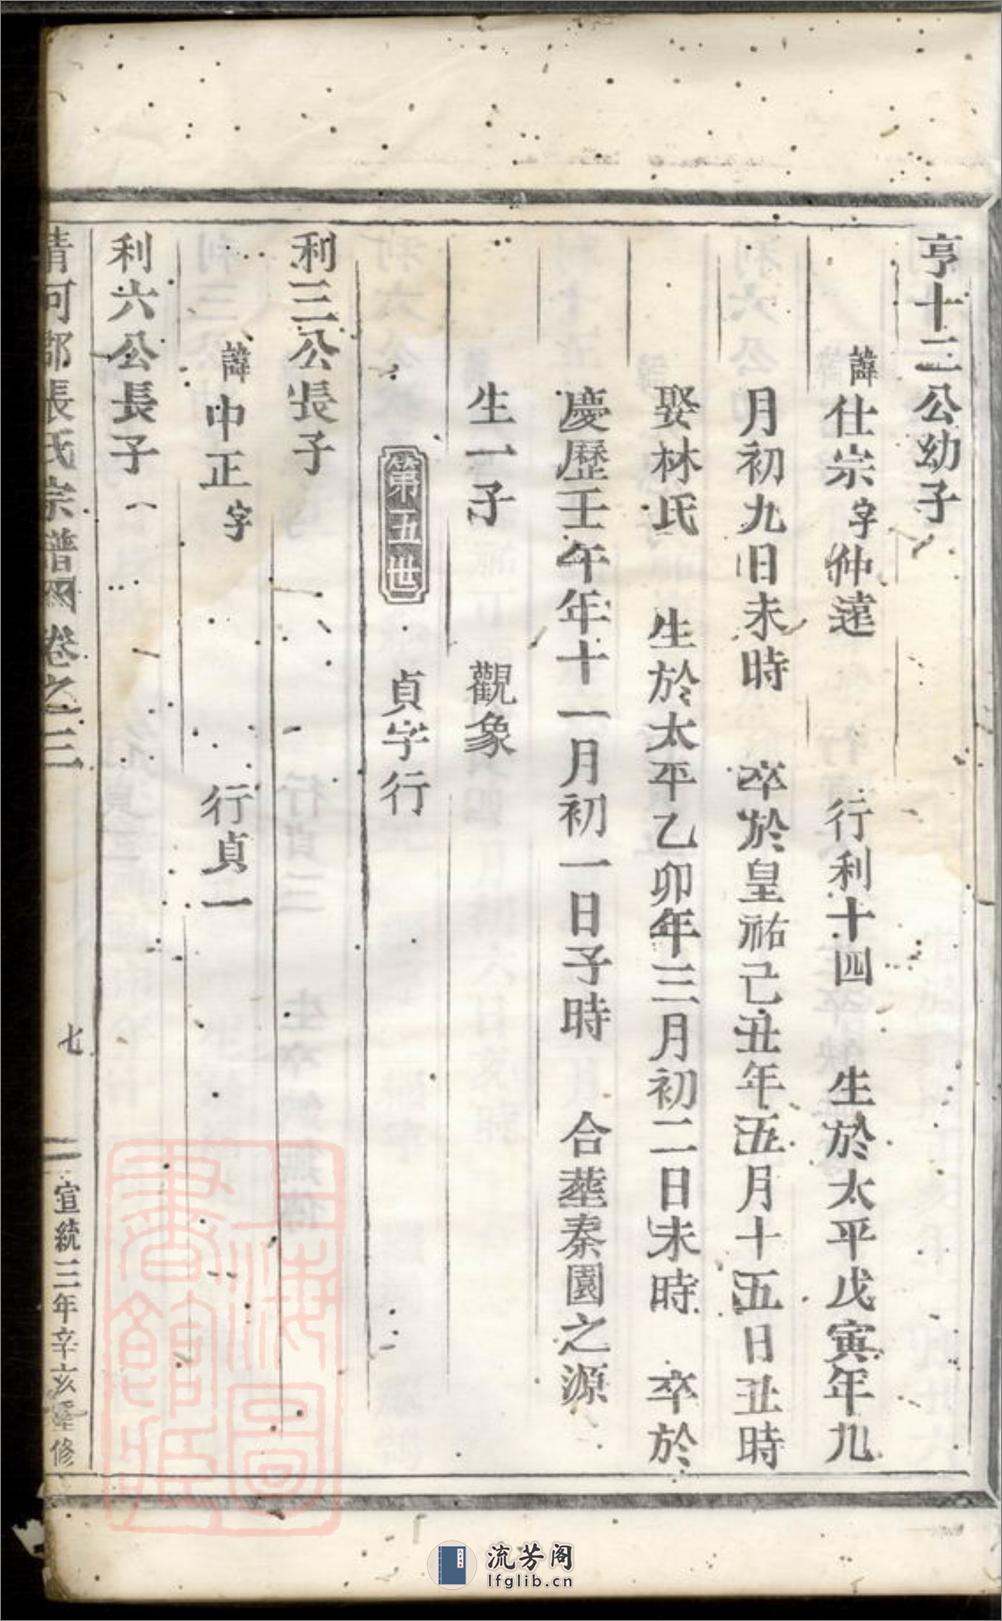 亨十二公幼子
諱仕宗字仲遠 行利十四 生於太平戊寅年九
月初九日未時 卒於皇祐己丑年五月十五日丑時
娶林氏 生於太平乙卯年三月初二日未時 卒於
慶歷壬午年十一月初一日子時 合塟秦園之源
生一子 觀象
第五世 貞字行
利三公長子
諱中正字 行貞一
利六公長子
清河郡張氏宗譜 卷之三 七 宣統三年辛亥重修
上海圖書館藏
流芳阁
lfglib.cn